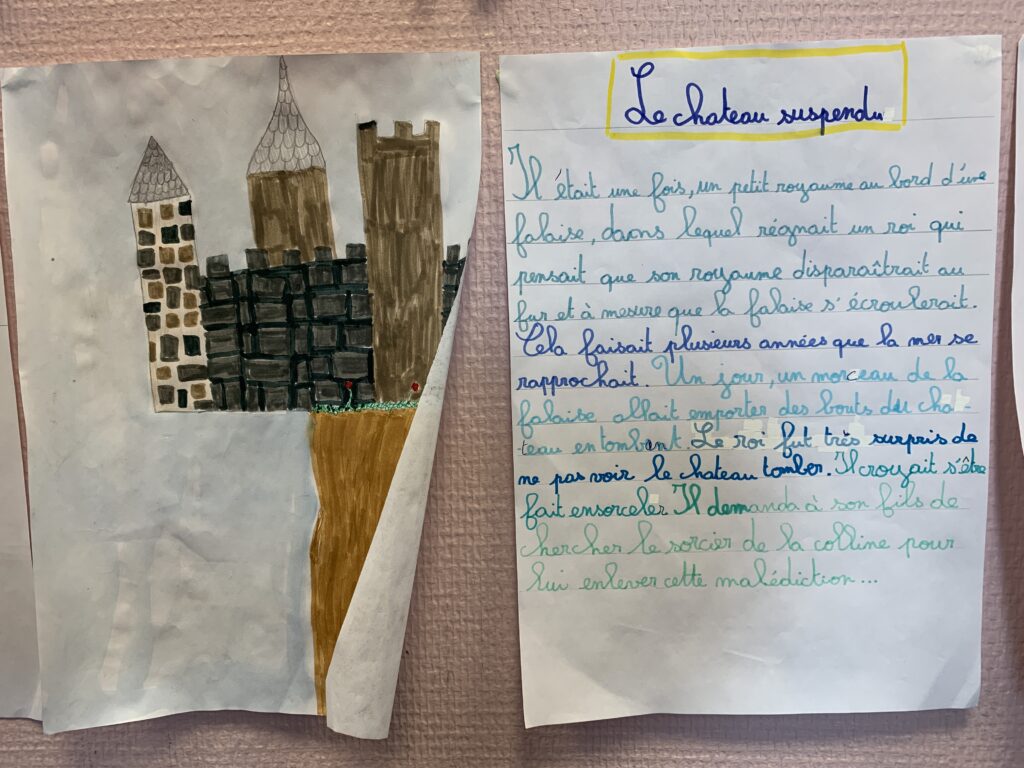 Le chateau suspendu
Il était une fois, un petit royaume au bord d'une
falaise, dans lequel régnait un roi qui
pensait que son royaume disparaîtrait au
fur et à mesure que la falaise s'écroulerait.
Cela faisait plusieurs années que la mer se
rapprochait. Un jour, un morceau de la
falaise allait emporter des bouts du cha-
teau en tombant. Le roi fut très surpris de
ne pas voir le chateau tomber. Il croyait s'être
fait ensorceler. Il demanda à son fils de
chercher le sorcier de la colline pour
lui enlever cette malédiction...